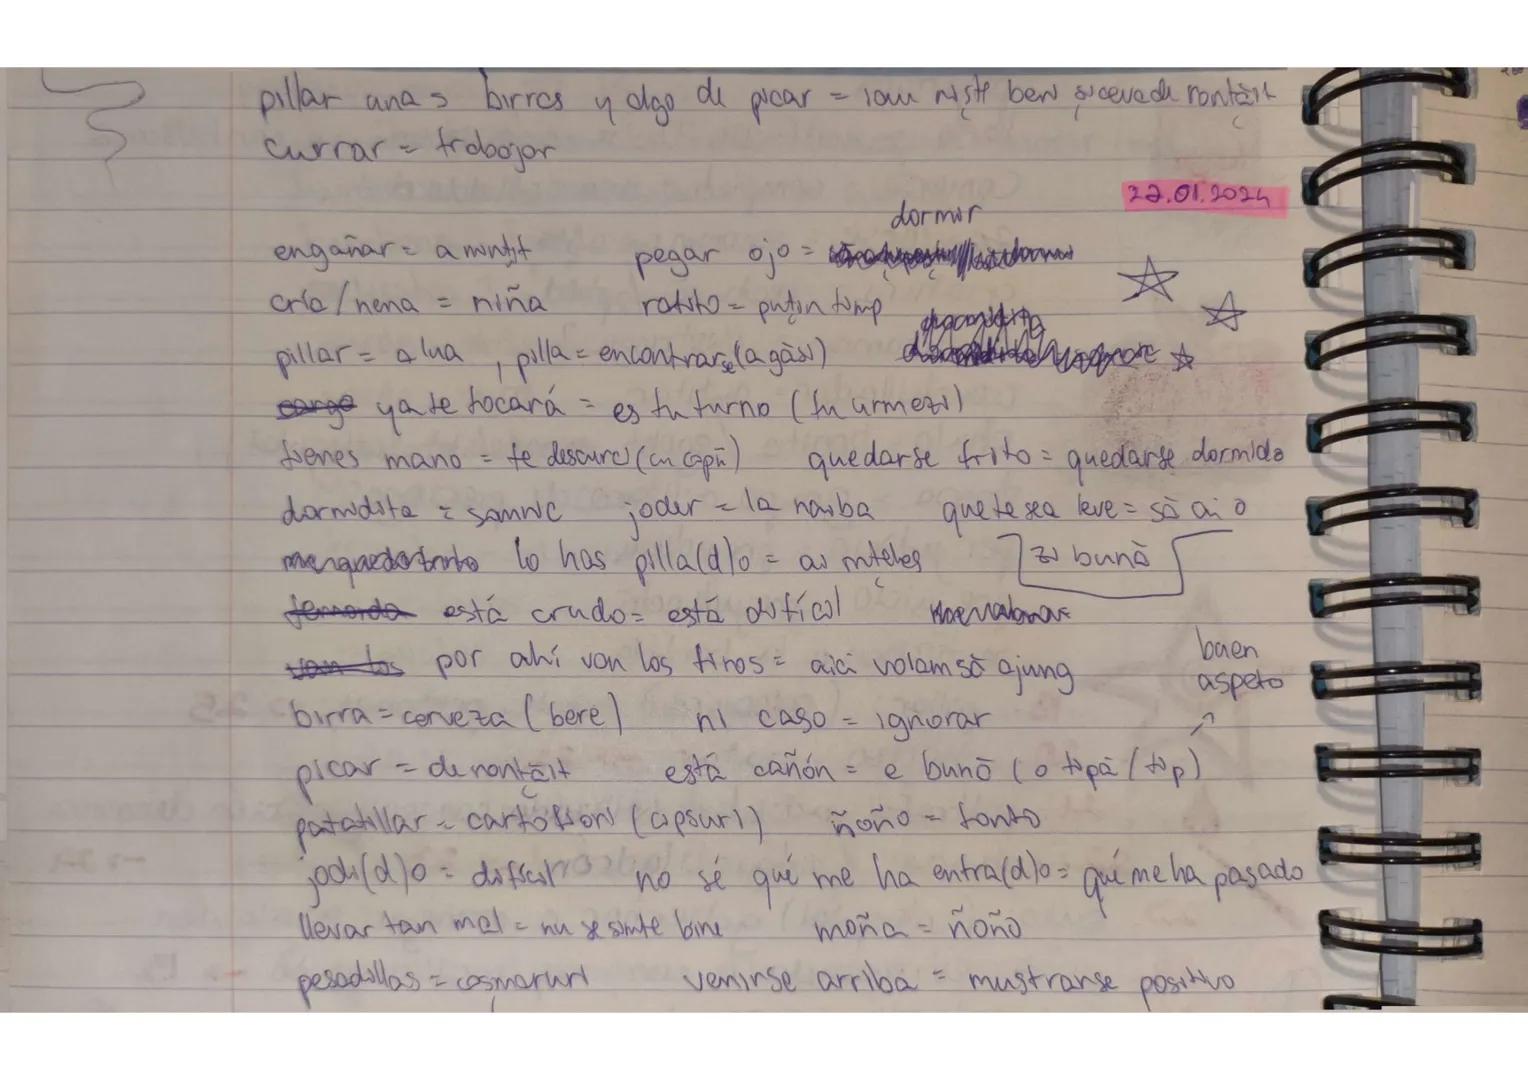 pillar unas birras y algo de picar = iau niște beri și ceva de ronțăit
currar = trabajar
22.01.2024
dormir
engañar = a minți pegar ojo =
cría/nena = niña ratito = puțin timp
pillar = a lua, pilla = encontrarse (a găsi)
ya te tocará = es tu turno (tu urmezi)
tienes mano = te descurci (cu copii) quedarse frito = quedarse dormido
dormidita = somnic joder = la naiba que te sea leve = să ai o
lo has pilla(d)o = ai înțeles zi bună
está crudo = está difícil
por ahí van los tiros = aici voiam să ajung
buen
aspeto
birra = cerveza (bere) ni caso = ignorar
picar = de ronțăit está cañón = e bună (o tipă/tip)
patatillar = cartofiori (cipsuri) ñoño = tonto
jodi(d)o = difícil no sé qué me ha entra(d)o = qué me ha pasado
llevar tan mal = nu se simte bine moña = ñoño
pesadillas = coșmaruri venirse arriba = mustrarse positivo